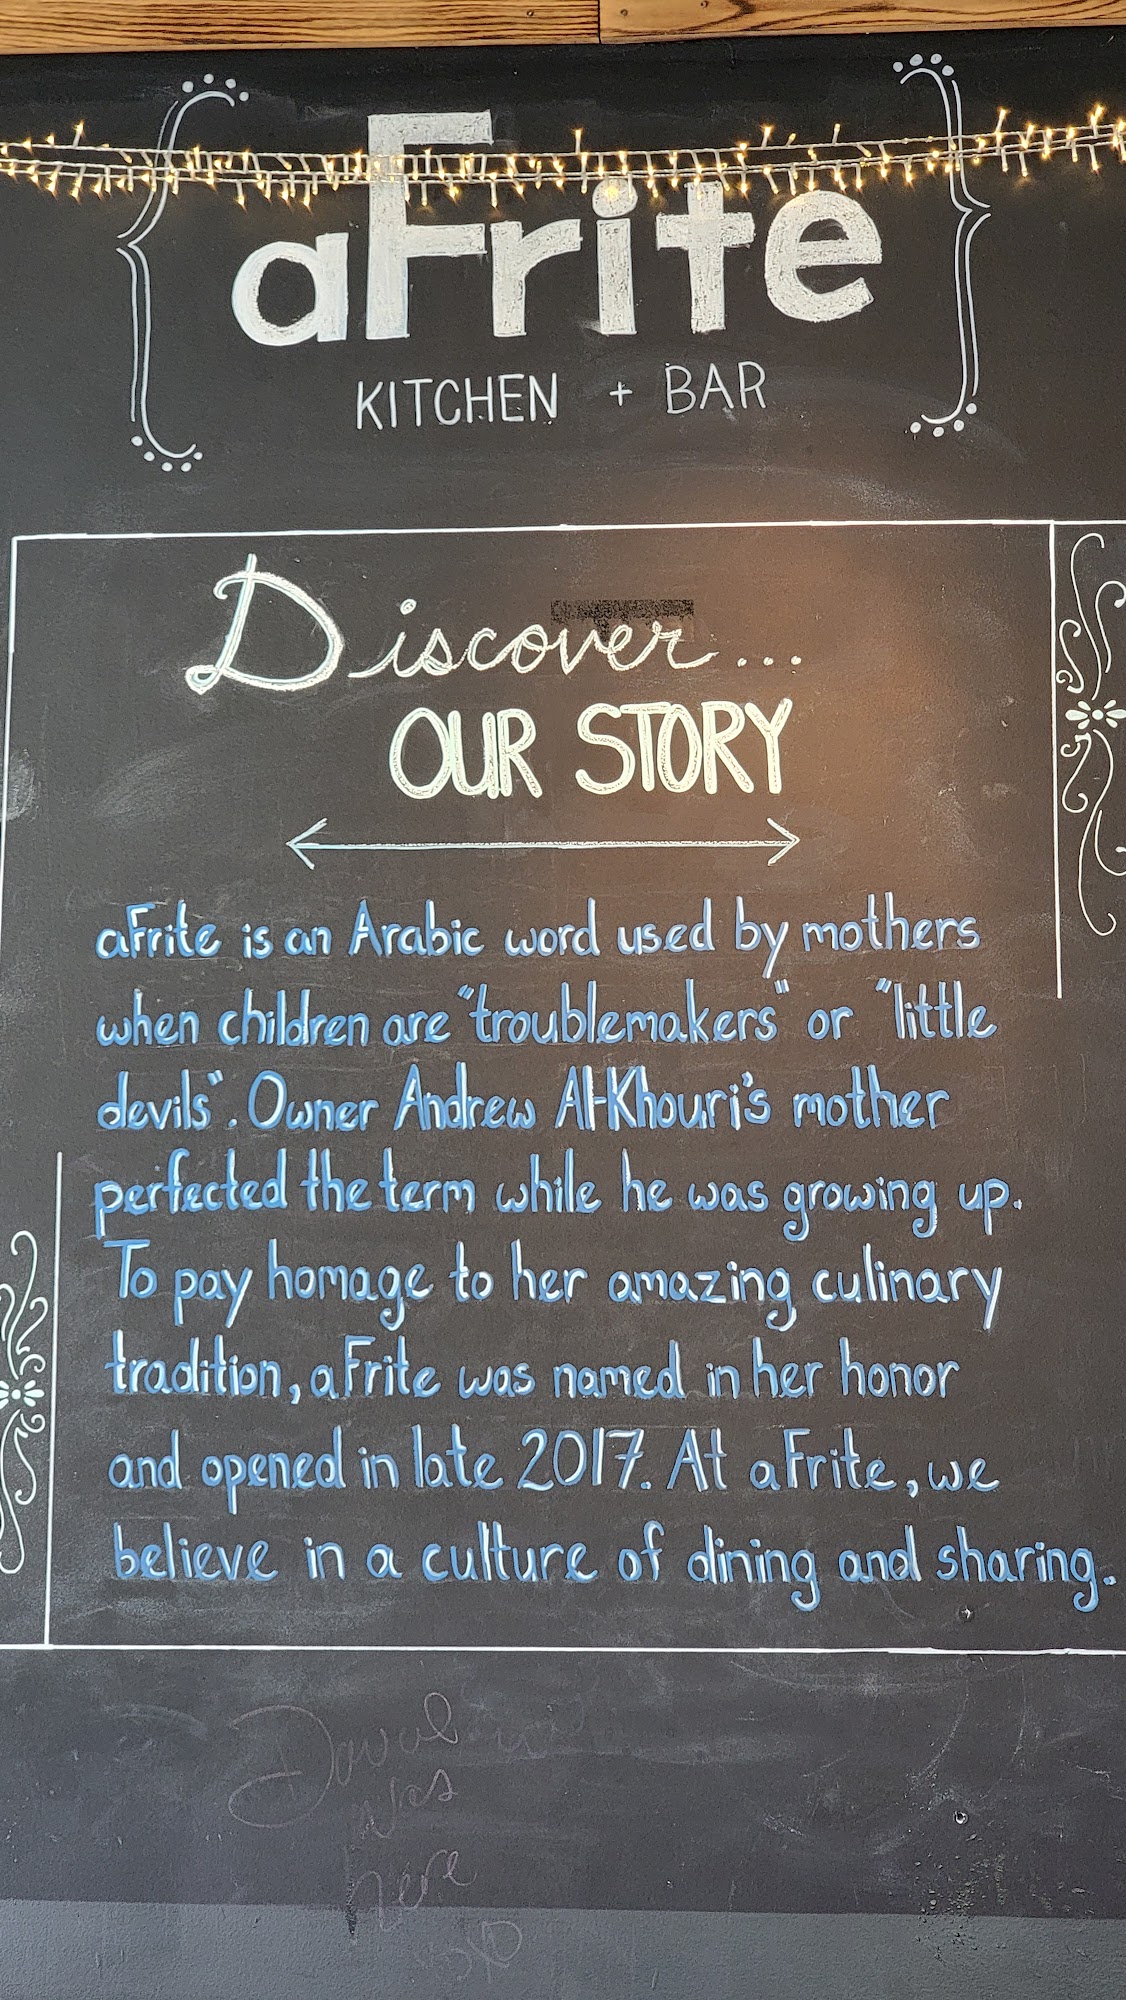 aFrite
KITCHEN + BAR
Discover...
OUR STORY
aFrite is an Arabic word used by mothers
when children are "troublemakers" or "little
devils". Owner Andrew Al-Khouri's mother
perfected the term while he was growing up.
To pay homage to her amazing culinary
tradition, aFrite was named in her honor
and opened in late 2017. At aFrite, we
believe in a culture of dining and sharing.
was
here